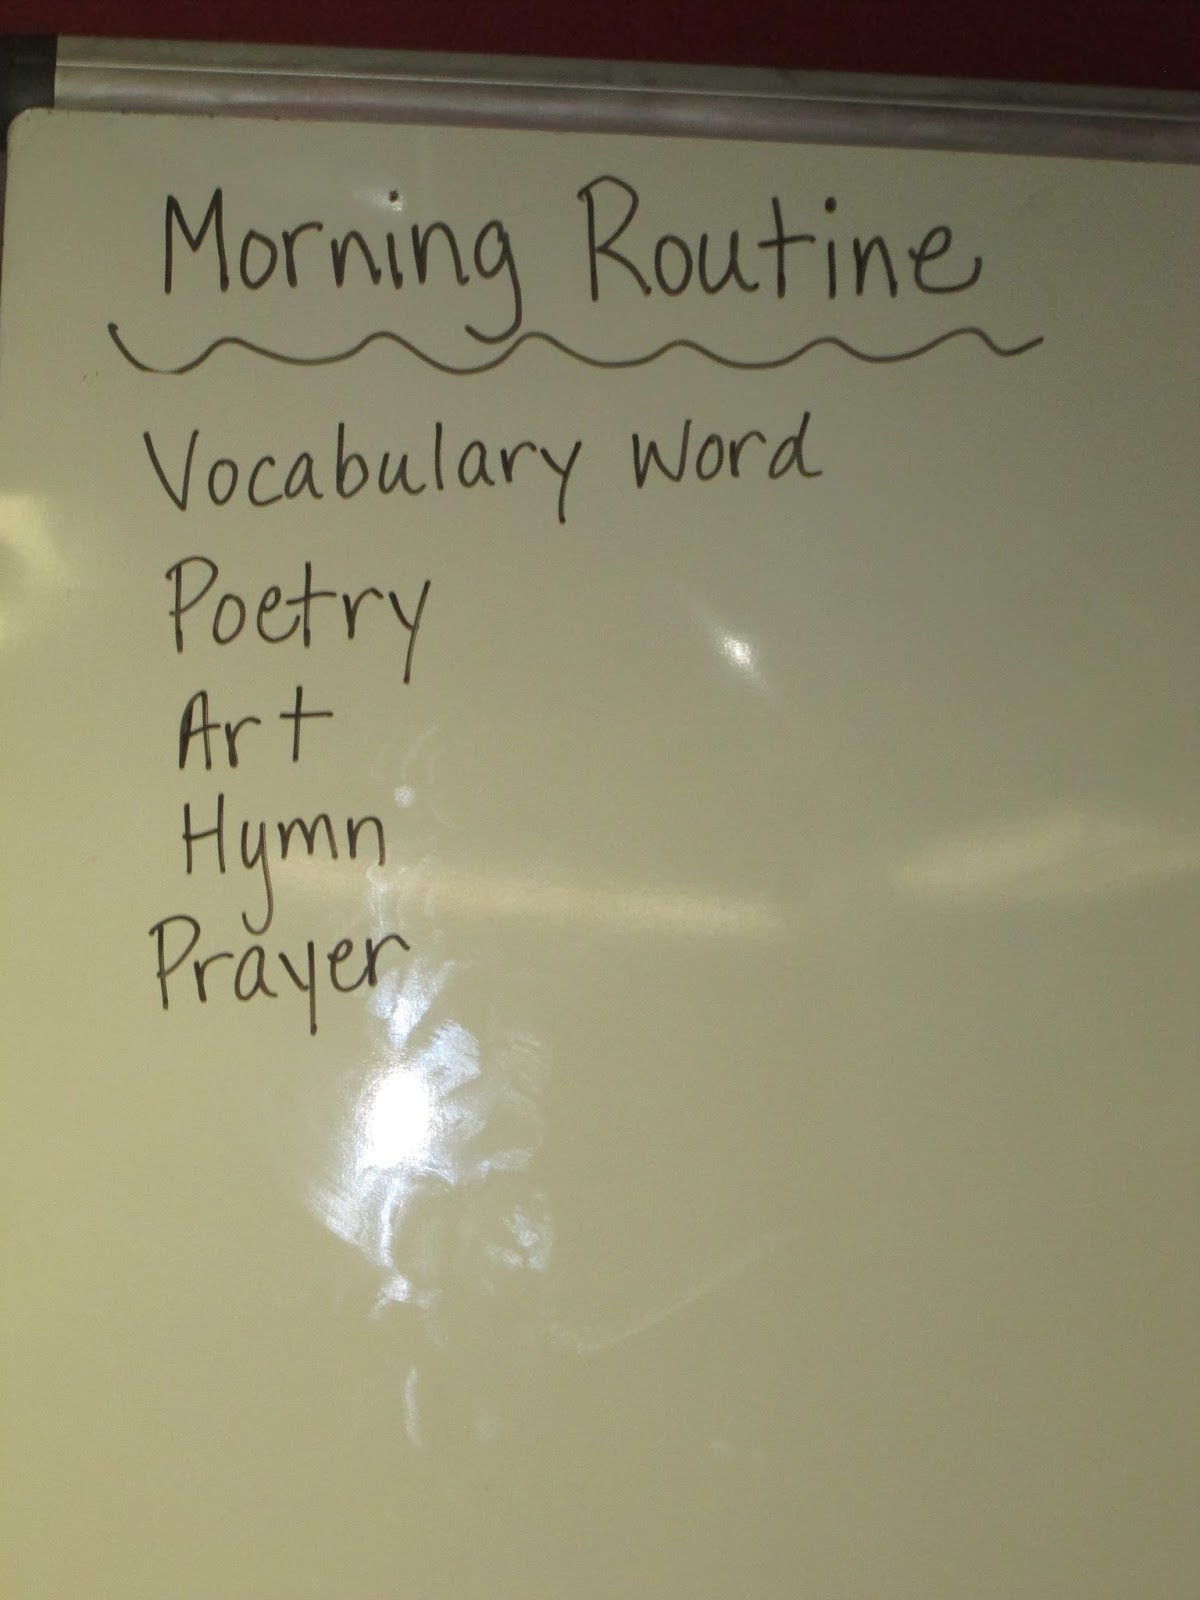 Morning Routine
Vocabulary Word
Poetry
Art
Hymn
Prayer